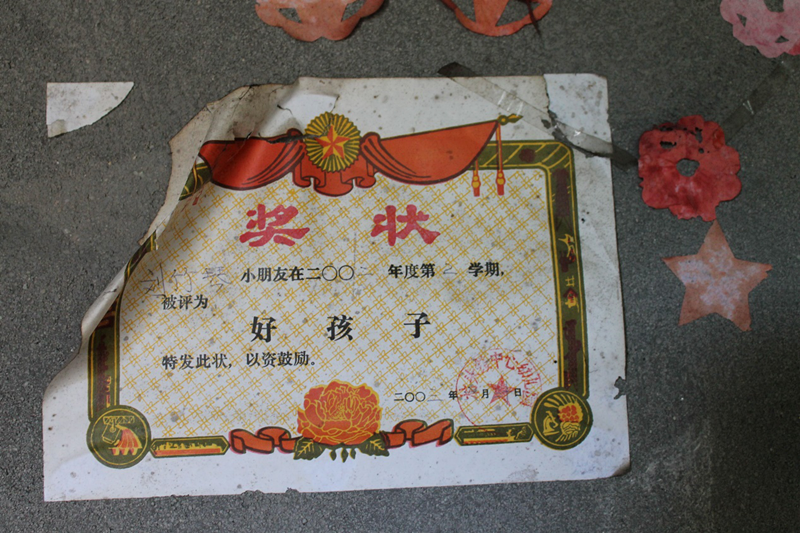 奖状
刘竹琴 小朋友在二〇〇二年度第二学期，
被评为
好孩子
特发此状，以资鼓励。
二〇〇二年 月 日
中心幼儿园